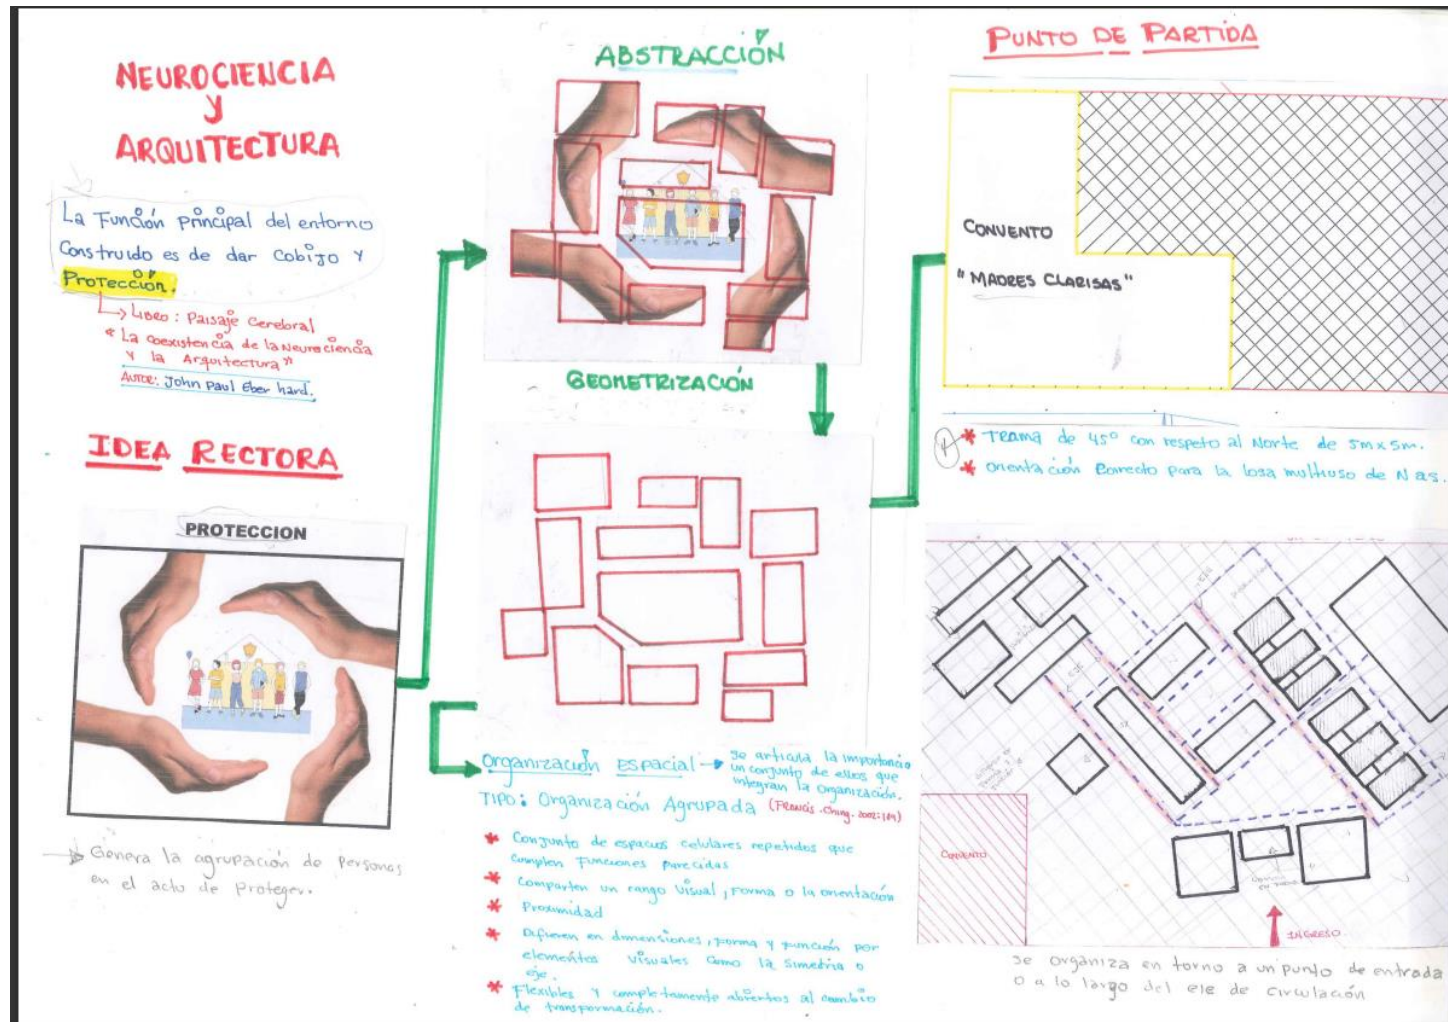 NEUROCIENCIA
y
ARQUITECTURA
La Función principal del entorno
Construido es de dar Cobijo Y
Protección.
Libro: Paisaje Cerebral
"La coexistencia de la Neurociencia
y la Arquitectura"
Autor: John Paul Eber hard.
IDEA RECTORA
PROTECCION
Genera la agrupación de personas
en el acto de Proteger.
ABSTRACCIÓN
GEOMETRIZACIÓN
Organización Espacial
se articula la importancia
un conjunto de ellos que
integran la organización.
TIPO: Organización Agrupada (Francis. Ching. 2002:189)
* Conjunto de espacios celulares repetidos que
cumplen funciones parecidas
* Comparten un rango visual, forma o la orientación
* Proximidad
* Difieren en dimensiones, forma y función por
elementos visuales como la simetria o
eje.
* Flexibles y completamente abiertos al cambio
de transformación.
PUNTO DE PARTIDA
CONVENTO
"MADRES CLARISAS"
* Trama de 45° con respeto al Norte de 5m x 5m.
* orientación correcto para la losa multiuso de N a S.
CONVENTO
INGRESO.
se organiza en torno a un punto de entrada
o a lo largo del eje de circulación